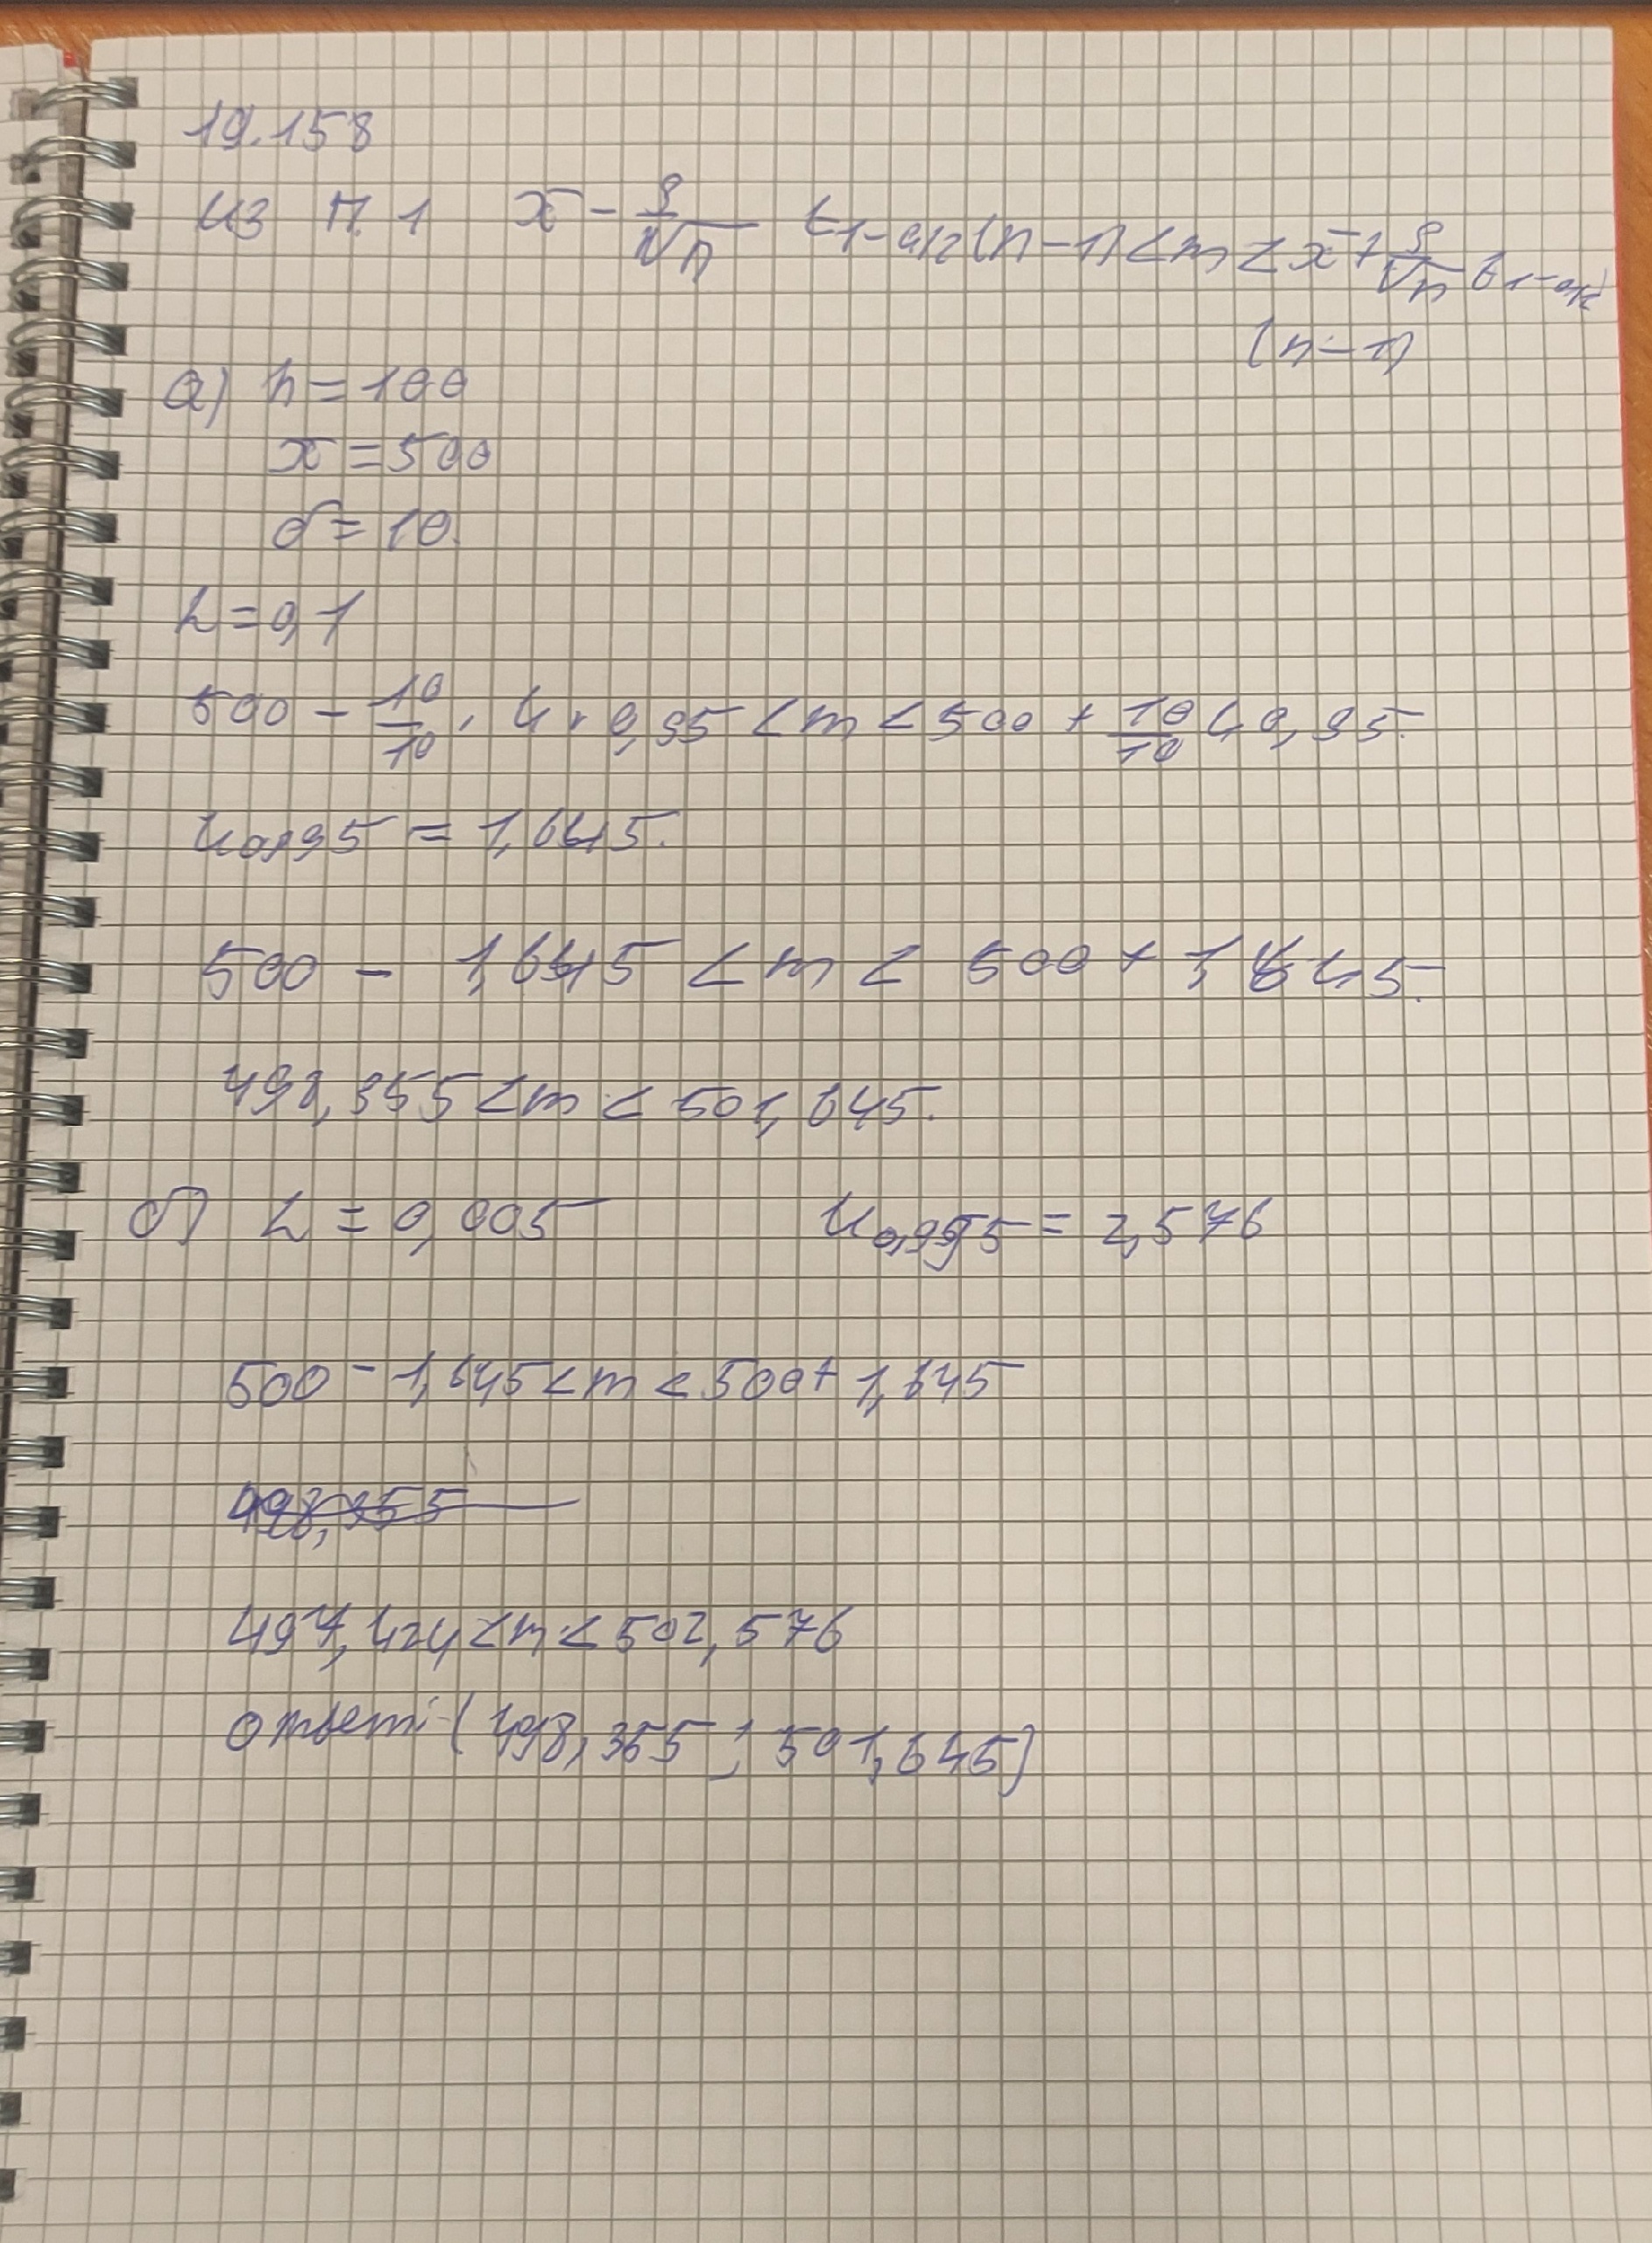 19.158
из п. 1 x̄ - s/√n t₁₋α/₂(n-1) < m < x̄ + s/√n t₁₋α/₂
(n-1)
а) n = 100
x̄ = 500
σ = 10.
α = 0,1
500 - 10/10 · u · 0,95 < m < 500 + 10/10 u 0,95.
u₀,₉₅ = 1,645.
500 - 1,645 < m < 500 + 1,645.
498,355 < m < 501,645.
б) α = 0,005 u₀,₉₉₅ = 2,576
500 - 1,645 < m < 500 + 1,645
498,355
497,424 < m < 502,576
ответ: (498,355 ; 501,645)